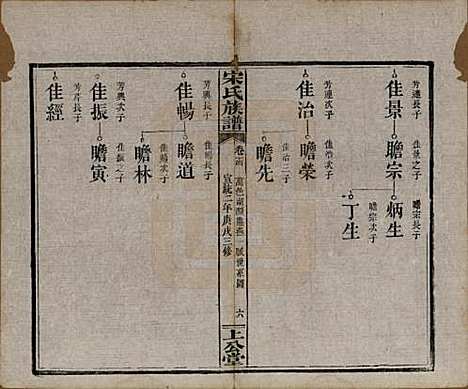 芳連長子
佳景
佳景之子
瞻宗
瞻宗長子
炳生
瞻宗次子
丁生
芳連次子
佳治
佳治次子
瞻榮
佳治三子
瞻先
宋氏族譜
宣統二年庚戌三修
六
上公堂
芳興長子
佳暢
佳暢長子
瞻道
佳暢次子
瞻林
芳興次子
佳振
佳振之子
瞻寅
芳芹長子
佳經